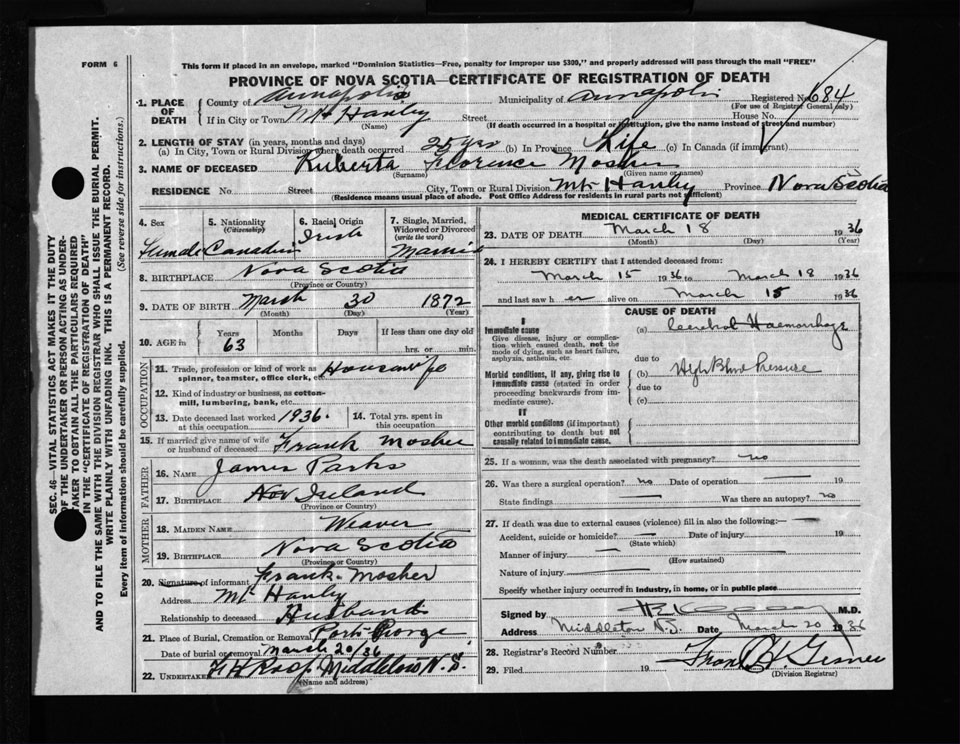 FORM 6
This form if placed in an envelope, marked "Dominion Statistics—Free, penalty for improper use $300," and properly addressed will pass through the mail "FREE"
PROVINCE OF NOVA SCOTIA—CERTIFICATE OF REGISTRATION OF DEATH
SEC. 46—VITAL STATISTICS ACT MAKES IT THE DUTY
OF THE UNDERTAKER OR PERSON ACTING AS UNDER-
TAKER TO OBTAIN ALL THE PARTICULARS REQUIRED
IN THE "CERTIFICATE OF REGISTRATION OF DEATH"
AND TO FILE THE SAME WITH THE DIVISION REGISTRAR WHO SHALL ISSUE THE BURIAL PERMIT.
WRITE PLAINLY WITH UNFADING INK. THIS IS A PERMANENT RECORD.
Every item of information should be carefully supplied. (See reverse side for instructions.)
1. PLACE OF DEATH County of Annapolis Municipality of Annapolis Registered No. 684
(For use of Registrar General only)
If in City or Town Mt Hanley Street House No.
(Name) (If death occurred in a hospital or institution, give the name instead of street and number)
2. LENGTH OF STAY (in years, months and days)
(a) In City, Town or Rural Division where death occurred 25 yrs (b) In Province Life (c) In Canada (if immigrant)
3. NAME OF DECEASED Ruberta Florence Mosher
(Surname) (Given name or names)
RESIDENCE No. Street City, Town or Rural Division Mt Hanley Province Nova Scotia
(Residence means usual place of abode. Post Office Address for residents in rural parts not sufficient)
4. Sex Female
5. Nationality (Citizenship) Canadian
6. Racial Origin Irish
7. Single, Married, Widowed or Divorced (write the word) Married
8. BIRTHPLACE Nova Scotia
(Province or Country)
9. DATE OF BIRTH March 30 1872
(Month) (Day) (Year)
10. AGE in Years 63 Months Days If less than one day old
hrs. or min.
OCCUPATION
11. Trade, profession or kind of work as spinner, teamster, office clerk, etc. Housewife
12. Kind of industry or business, as cotton-mill, lumbering, bank, etc.
13. Date deceased last worked at this occupation 1936.
14. Total yrs. spent in this occupation
15. If married give name of wife or husband of deceased Frank Mosher
FATHER
16. NAME James Parks
17. BIRTHPLACE Nov Ireland
(Province or Country)
MOTHER
18. MAIDEN NAME Weaver
19. BIRTHPLACE Nova Scotia
(Province or Country)
20. Signature of informant Frank Mosher
Address Mt Hanly
Relationship to deceased Husband
21. Place of Burial, Cremation or Removal Port George
Date of burial or removal March 20/36
22. UNDERTAKER Middleton N.S.
(Name and address)
MEDICAL CERTIFICATE OF DEATH
23. DATE OF DEATH March 18 1936
(Month) (Day) (Year)
24. I HEREBY CERTIFY that I attended deceased from:
March 15 1936 to March 18 1936
and last saw her alive on March 15 1936
CAUSE OF DEATH
I
Immediate cause
Give disease, injury or complication which caused death, not the mode of dying, such as heart failure, asphyxia, asthenia, etc.
(a) Cerebral Haemorrhage
due to
Morbid conditions, if any, giving rise to immediate cause (stated in order proceeding backwards from immediate cause).
(b) High Blood Pressure
due to
(c)
II
Other morbid conditions (if important) contributing to death but not causally related to immediate cause.
25. If a woman, was the death associated with pregnancy? no
26. Was there a surgical operation? no Date of operation 19
State findings Was there an autopsy? no
27. If death was due to external causes (violence) fill in also the following:—
Accident, suicide or homicide? Date of injury 19
(State which)
Manner of injury
(How sustained)
Nature of injury
Specify whether injury occurred in industry, in home, or in public place
Signed by M.D.
Address Middleton N.S. Date March 20 1936
28. Registrar's Record Number
29. Filed 19
(Division Registrar)